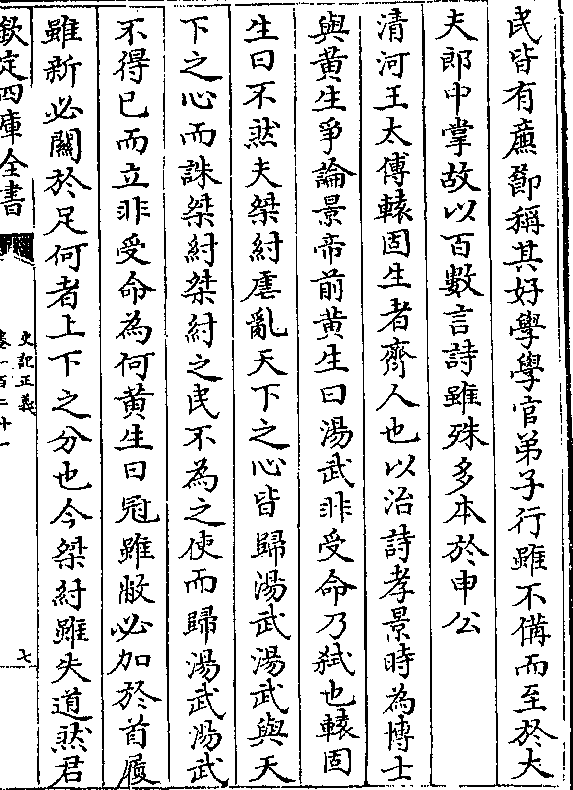 民皆有亷節稱其好學學官弟子行雖不備而至於大
夫郎中掌故以百數言詩雖殊多本於申公
清河王太傅轅固生者齊人也以治詩孝景時為博士
與黄生爭論景帝前黄生曰湯武非受命乃弑也轅固
生曰不然夫桀紂虐亂天下之心皆歸湯武湯武與天
下之心而誅桀紂桀紂之民不為之使而歸湯武湯武
不得已而立非受命為何黄生曰冠雖敝必加於首履
雖新必關於足何者上下之分也今桀紂雖失道然君
欽定四庫全書
史記正義
卷一百二十一
七